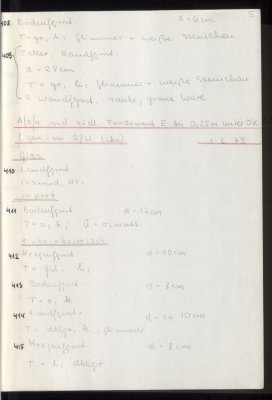 5
408 Bodenfgmt. d = 6 cm
T = gr, h, Glimmer + weiße Steinchen
409 Teller, Randfgmt.
d = 28 cm
T = gr, h, Glimmer + weiße Steinchen
4 Wandfgmt. rauhe, graue Ware
A/O/n und südl. Fundament E bis 0,25m unter OK
S/W 1.6.78
Glas
410 Randfgmt
irisierend,
import
411 Bodenfgmt. d = 12 cm
T = o, h, Ü = o, matt
einheimisch
412 Kragenfgmt d = 10 cm
T = gr, h,
413 Bodenfgmt. d = 8 cm
T = o, h
414 Randfgmt d = ca 10 cm
T = dklgr, h, Glimmer
415 Kragenfgmt. d = 8 cm
T = h, dklgr